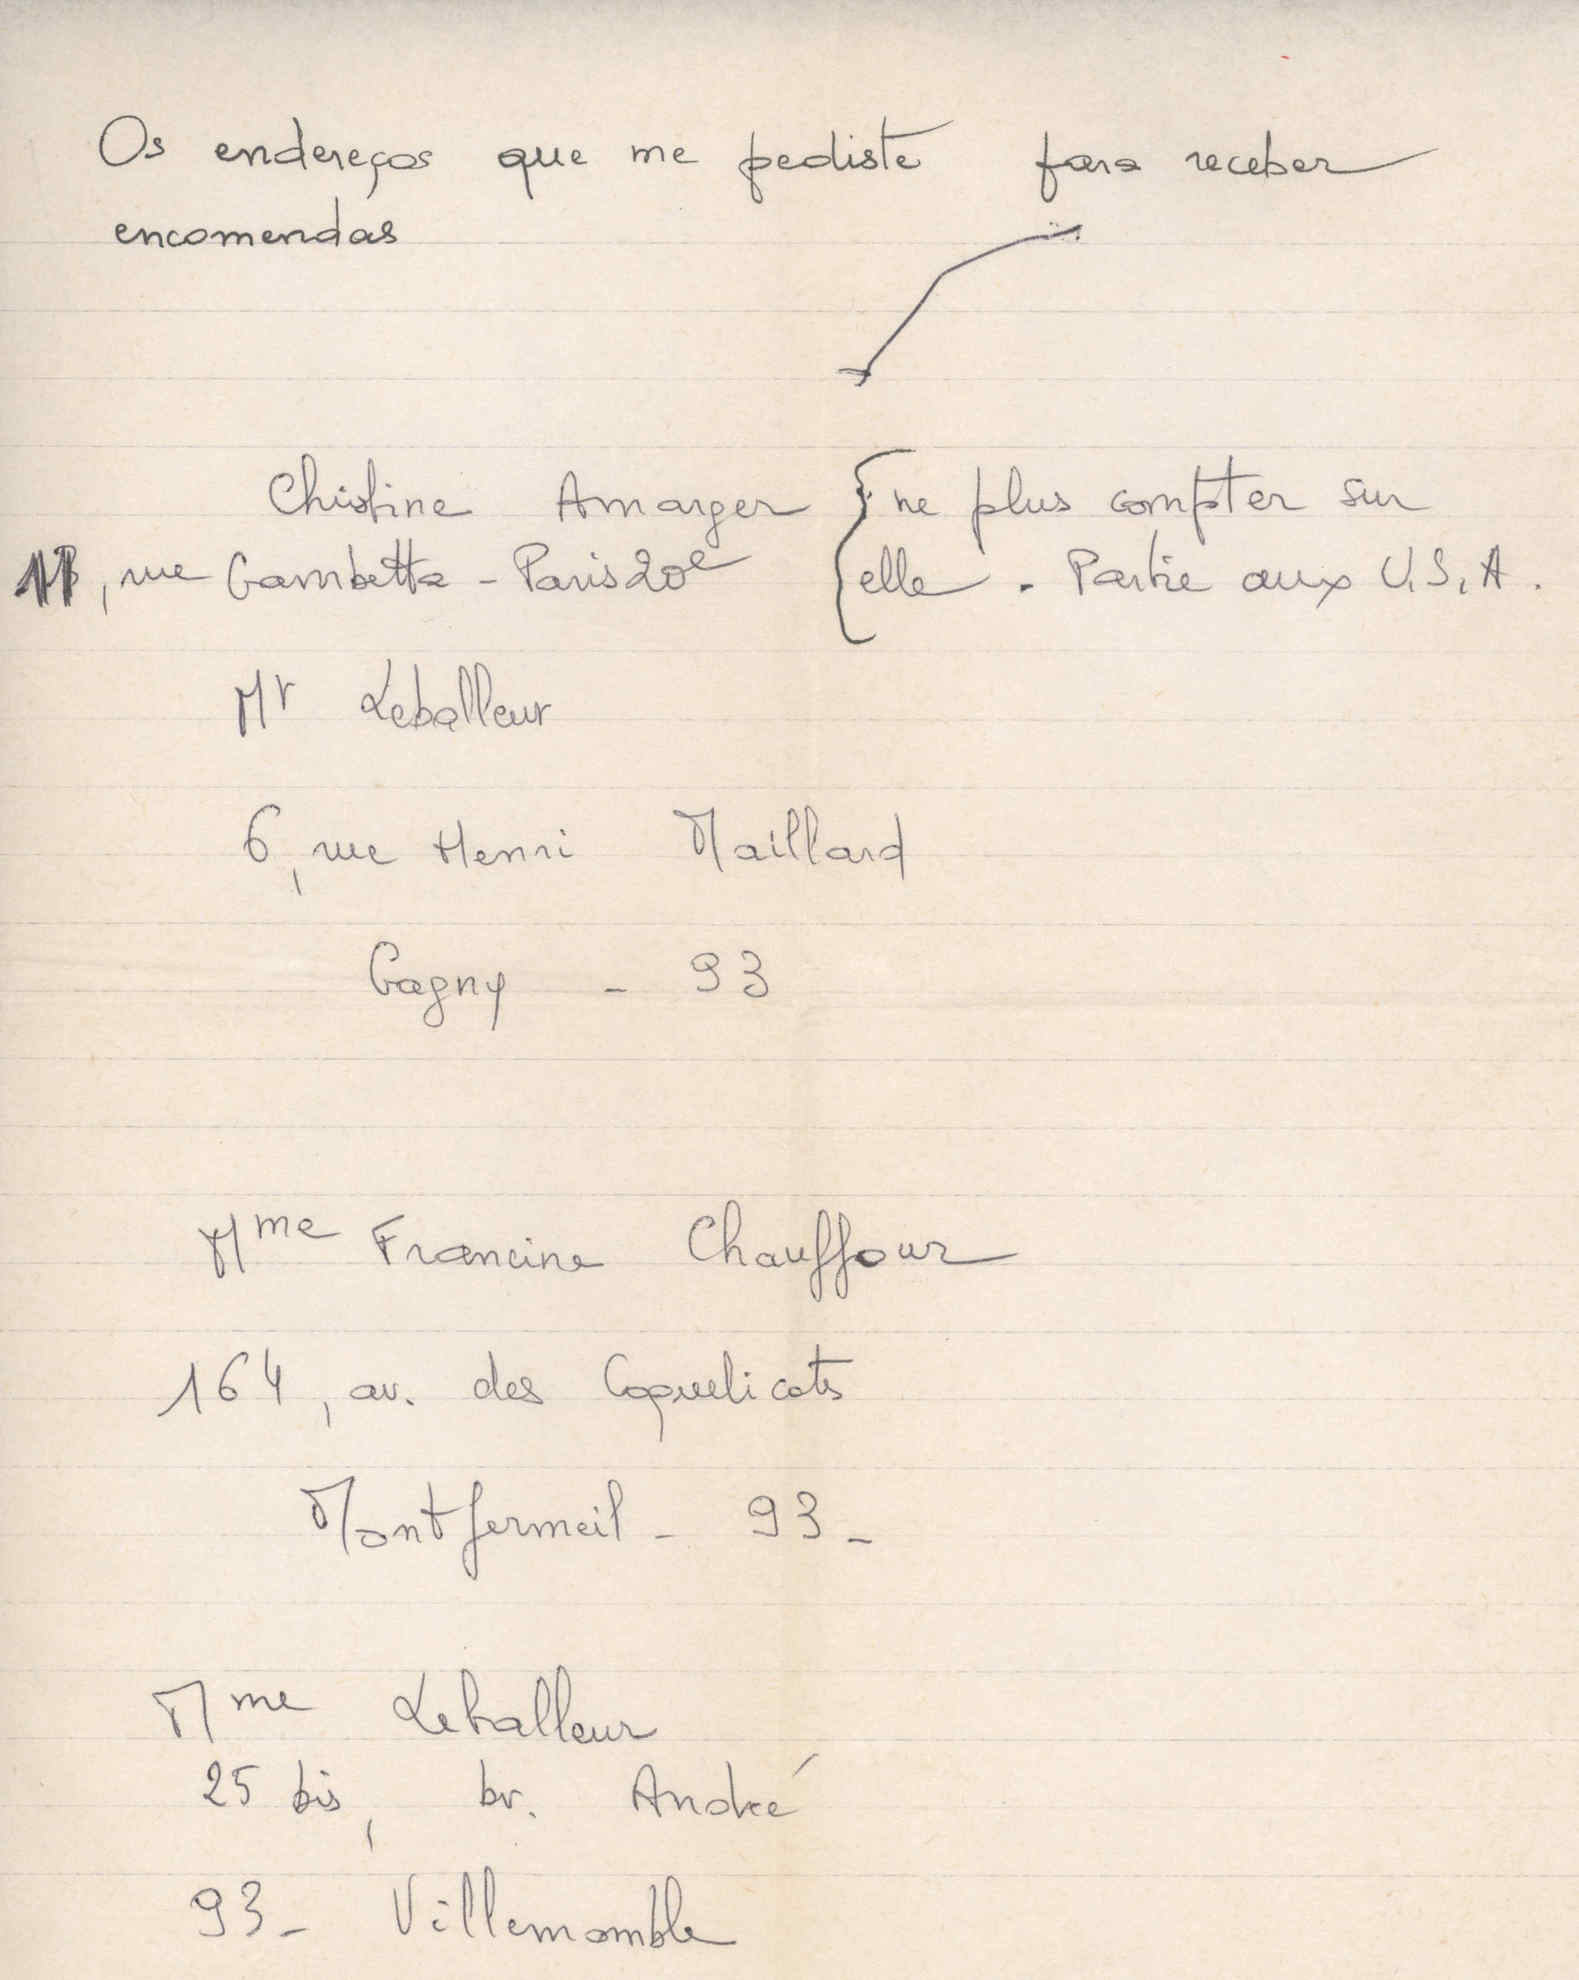 Os endereços que me pediste para receber
encomendas
Christine Amarger { ne plus compter sur
, rue Gambetta - Paris 20e { elle. Partie aux U.S.A.
Mr Leballeur
6, rue Henri Maillard
Gagny - 93
Mme Francine Chauffour
164, av. des Coquelicots
Montfermeil - 93 -
Mme Leballeur
25 bis, bv. André
93 - Villemomble